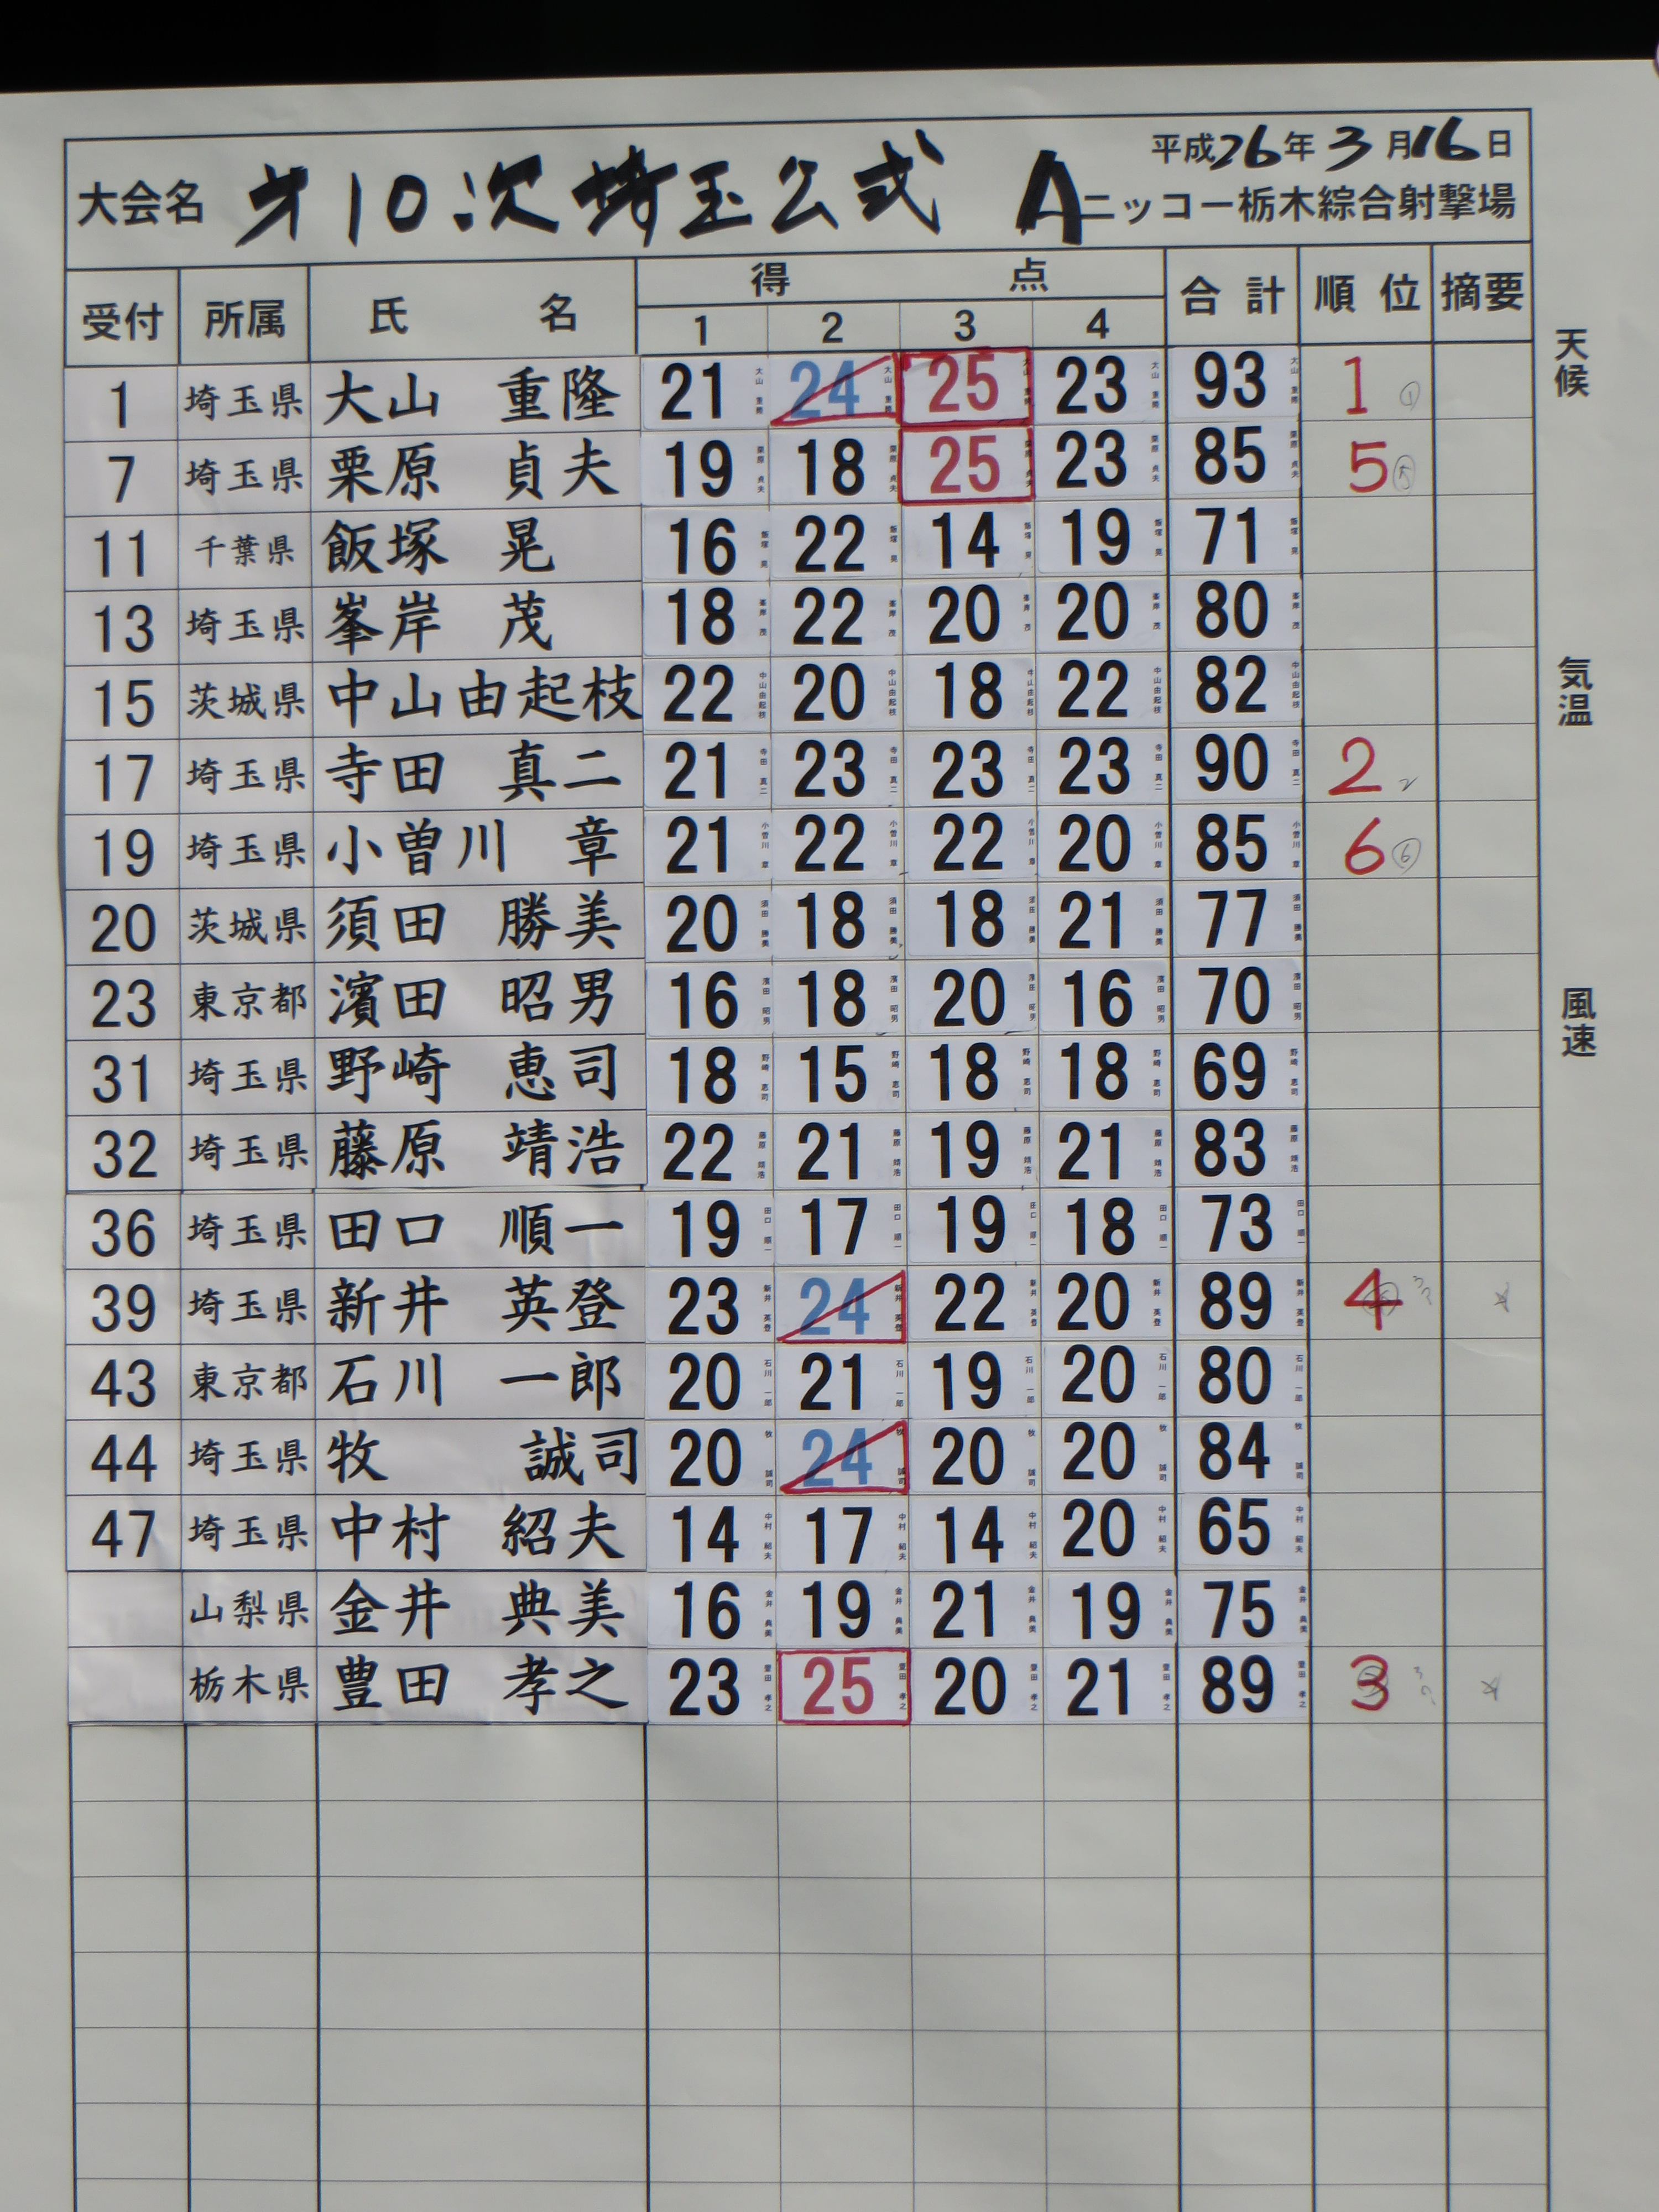 平成26年3月16日
大会名 第10次埼玉公式 A ニッコー栃木綜合射撃場
受付 所属 氏名 得点 合計 順位 摘要
1 2 3 4
1 埼玉県 大山 重隆 21 24 25 23 93 1 ①
7 埼玉県 栗原 貞夫 19 18 25 23 85 5 ⑤
11 千葉県 飯塚 晃 16 22 14 19 71
13 埼玉県 峯岸 茂 18 22 20 20 80
15 茨城県 中山由起枝 22 20 18 22 82
17 埼玉県 寺田 真二 21 23 23 23 90 2 2
19 埼玉県 小曽川 章 21 22 22 20 85 6 ⑥
20 茨城県 須田 勝美 20 18 18 21 77
23 東京都 濱田 昭男 16 18 20 16 70
31 埼玉県 野崎 恵司 18 15 18 18 69
32 埼玉県 藤原 靖浩 22 21 19 21 83
36 埼玉県 田口 順一 19 17 19 18 73
39 埼玉県 新井 英登 23 24 22 20 89 4
43 東京都 石川 一郎 20 21 19 20 80
44 埼玉県 牧 誠司 20 24 20 20 84
47 埼玉県 中村 紹夫 14 17 14 20 65
山梨県 金井 典美 16 19 21 19 75
栃木県 豊田 孝之 23 25 20 21 89 3
天候
気温
風速